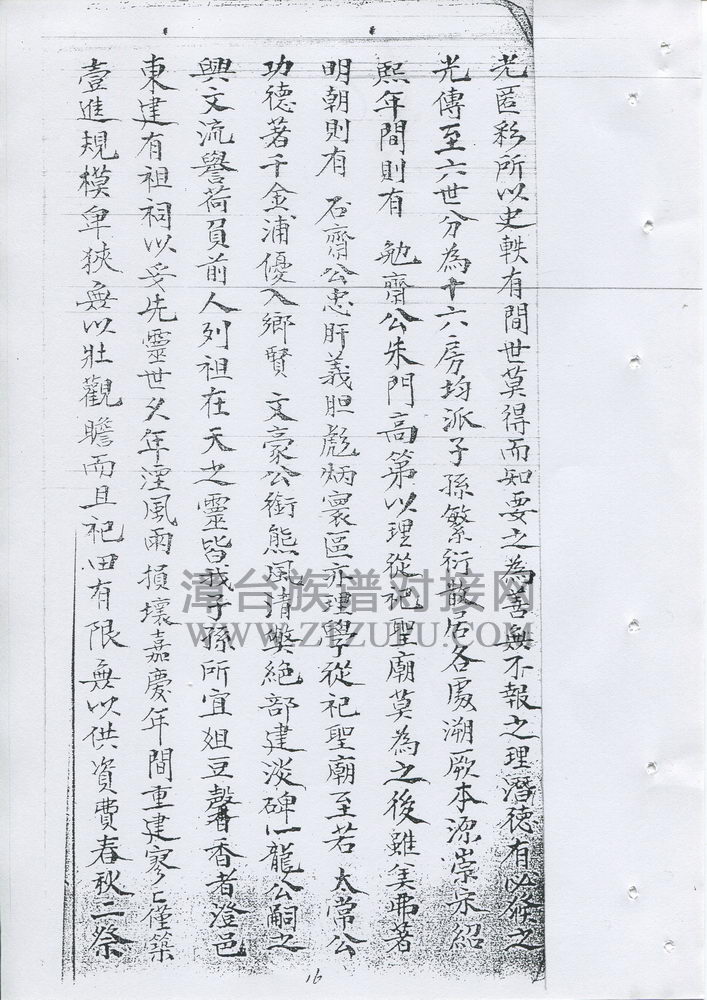 光匿彩所以史軼有間世莫得而知要之為善無不報之理潛德有必發之
光傳至六世分為十六房均派子孫繁衍散居各處溯厥本源崇宗紹
熙年間則有 勉齋公朱門高第以理從祀聖廟莫為之後雖美弗著
明朝則有 石齋公忠肝義胆彪炳寰區亦理學從祀聖廟至若 太常公
功德著千金浦優入鄉賢 文豪公銜熊風清獘絶部建淡碑一龍公嗣之
興文流譽荷負前人列祖在天之靈皆我子孫所宜俎豆馨香者澄邑
東建有祖祠以妥先靈世久年湮風雨損壞嘉慶年間重建寥々僅築
壹進規模卑狹無以壯觀瞻而且祀田有限無以供資費春秋二祭
漳台族谱对接网
WWW.ZTZUPU.COM
16